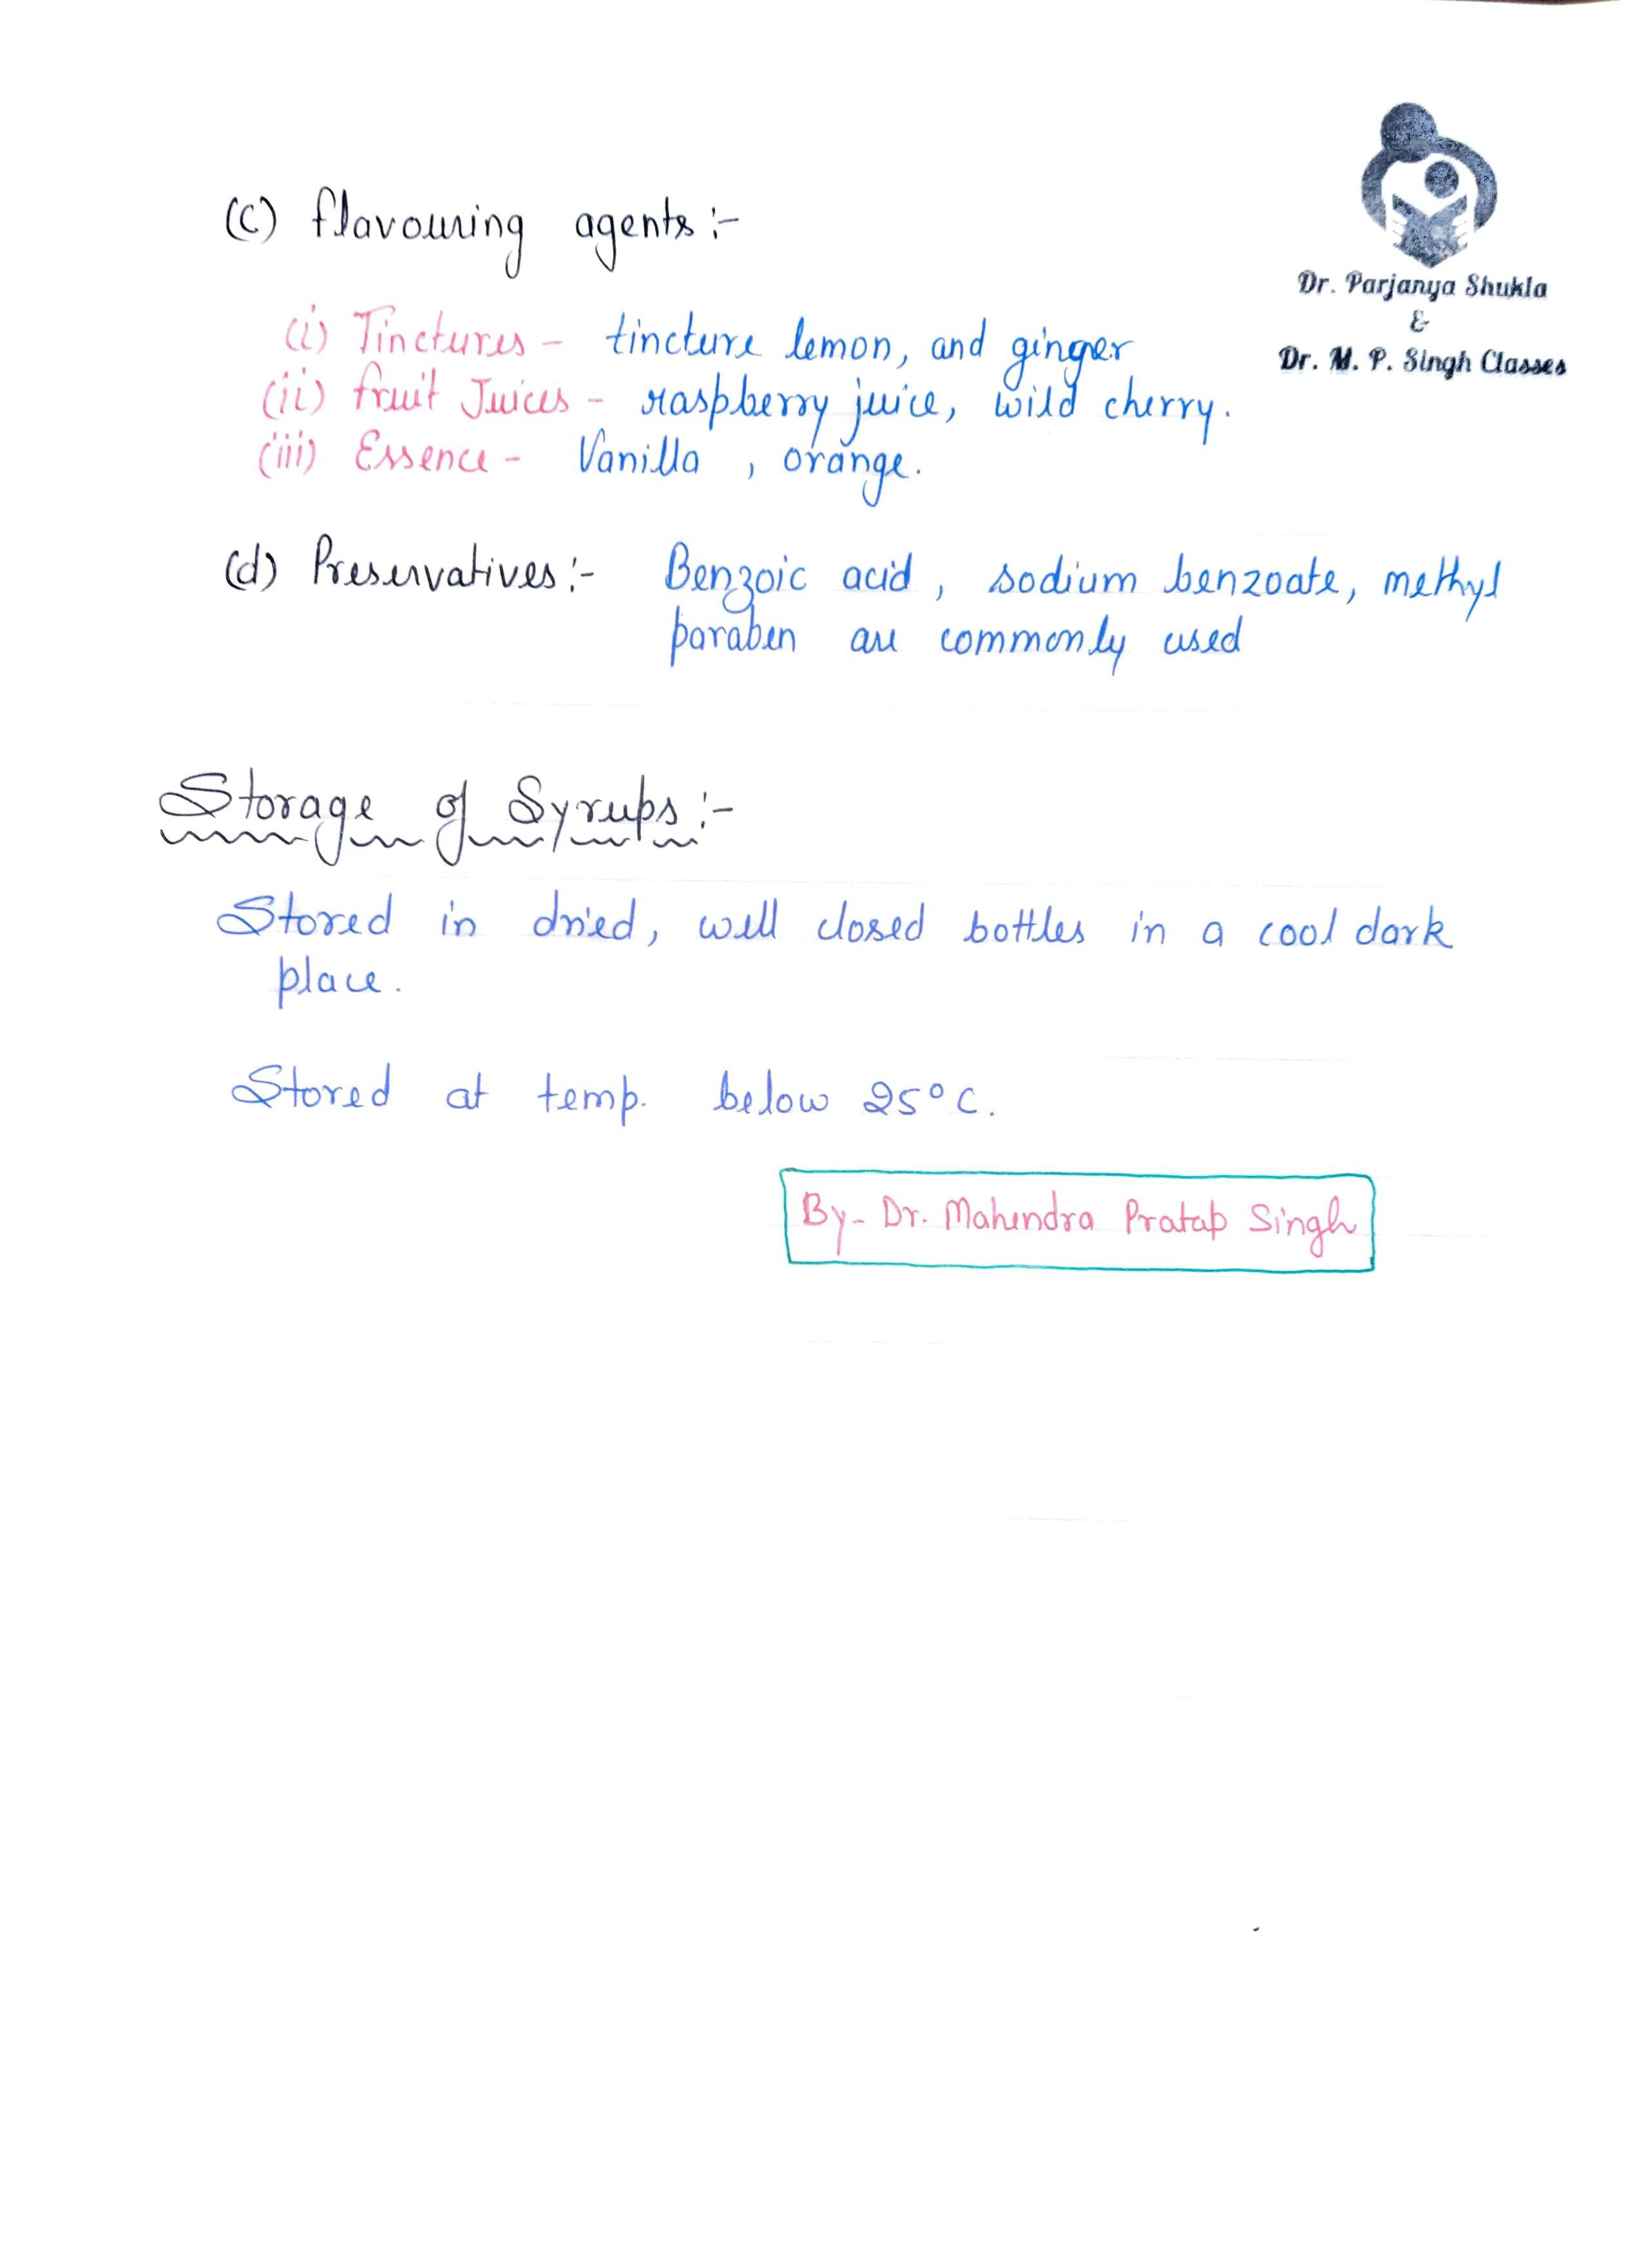 Dr. Parjanya Shukla
&
Dr. M. P. Singh Classes
(c) flavouring agents :-
(i) Tinctures - tincture lemon, and ginger
(ii) fruit Juices - raspberry juice, wild cherry.
(iii) Essence - Vanilla , orange.
(d) Preservatives :- Benzoic acid , sodium benzoate, methyl
paraben are commonly used
Storage of Syrups :-
Stored in dried, well closed bottles in a cool dark
place.
Stored at temp. below 25°C.
By- Dr. Mahendra Pratap Singh